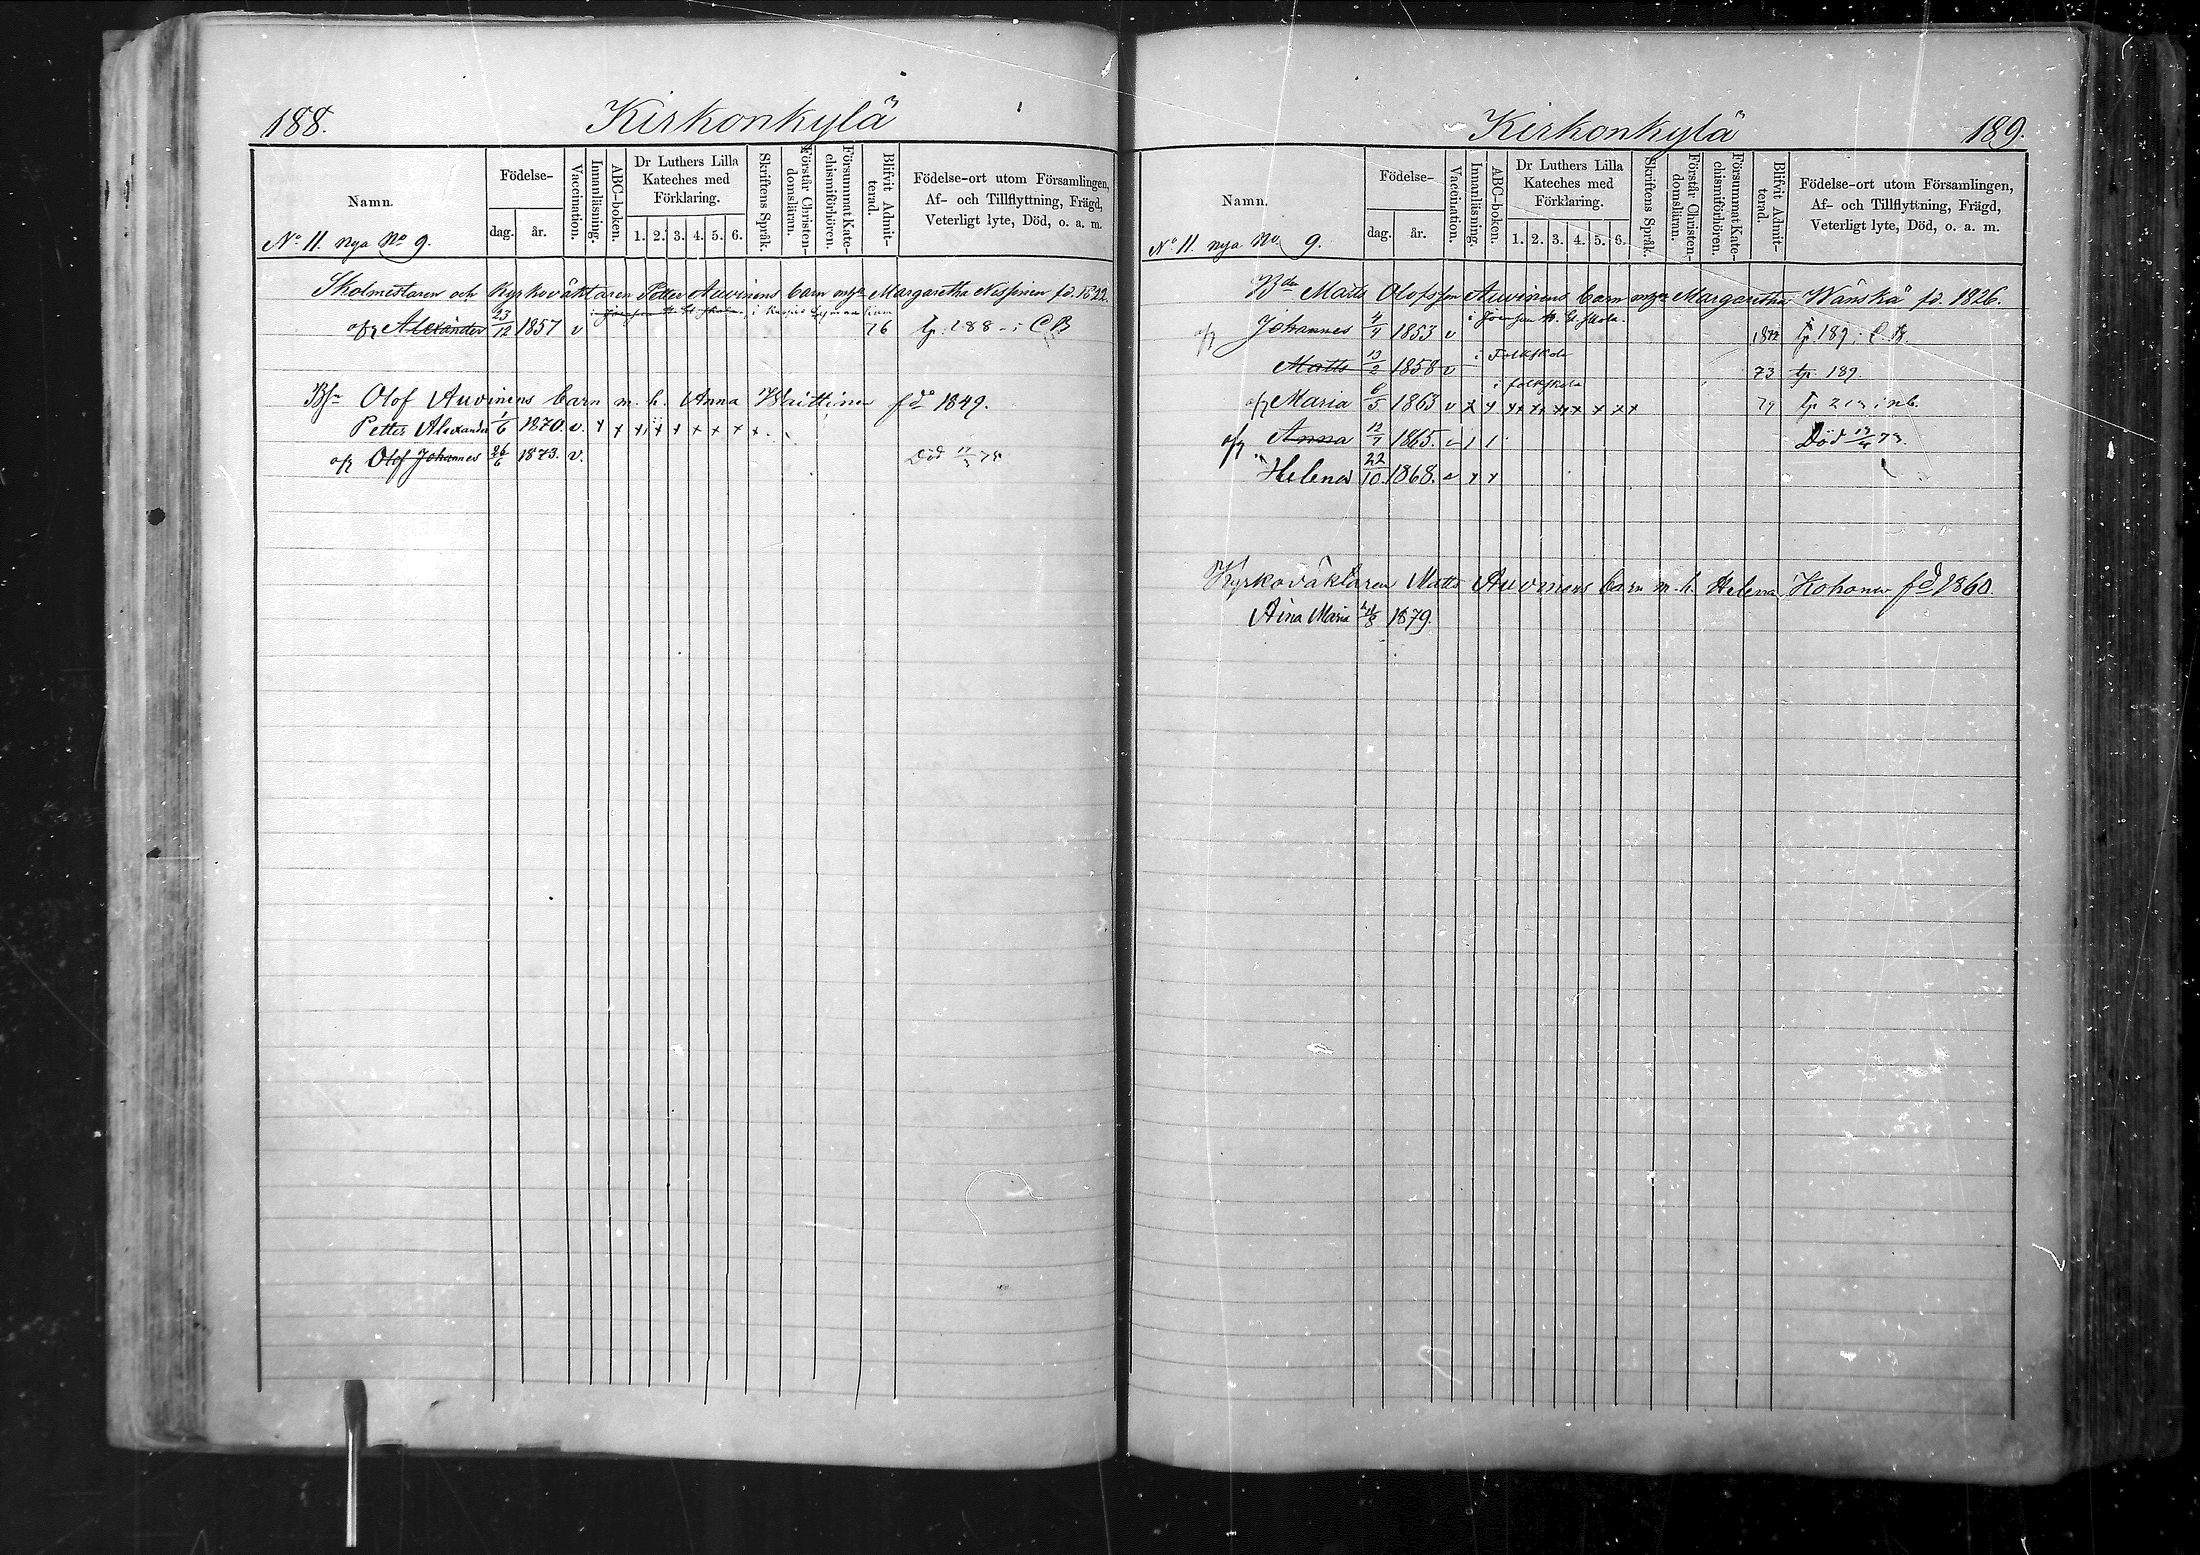 188.
Kirkonkylä
Namn.
Födelse-
dag. år.
Vaccination.
Innanläsning.
ABC-boken.
Dr Luthers Lilla
Kateches med
Förklaring.
1. 2. 3. 4. 5. 6.
Skriftens Språk.
Förstår Christen-
domsläran.
Försummat Kate-
chismiförhören.
Blifvit Admit-
terad.
Födelse-ort utom Församlingen,
Af- och Tillflyttning, Frägd,
Veterligt lyte, Död, o. a. m.
No 11. nya No 9.
Skolmestaren och Kyrkoväktaren Petter Auvinens barn Margaretha fd. 1822.
Alexander 23/12 1857 v 76 C B
Olof Auvinens barn m. h. Anna fd 1849.
Petter Alexander 1/6 1870. v. x x x x x x x x x
Olof Johannes 26/6 1873. v. Död
189.
Kirkonkylä
Namn.
Födelse-
dag. år.
Vaccination.
Innanläsning.
ABC-boken.
Dr Luthers Lilla
Kateches med
Förklaring.
1. 2. 3. 4. 5. 6.
Skriftens Språk.
Förstår Christen-
domsläran.
Försummat Kate-
chismiförhören.
Blifvit Admit-
terad.
Födelse-ort utom Församlingen,
Af- och Tillflyttning, Frägd,
Veterligt lyte, Död, o. a. m.
No 11. nya No 9.
Matts Olofsson Auvinens barn Margaretha Wänskä fd. 1826.
Johannes 4/4 1853 v 1872 189. C. B.
i Folkskola
Matts 13/2 1858 v 73 189.
i folkskola
Maria 6/5 1863 v x x x x x x x x x 79
Anna 12/7 1865. Död 73.
Helena 22/10 1868. v x x
Kyrkoväktaren Matts Auvinens barn m. h. Helena Kohonen fd 1860.
Aina Maria 1879.